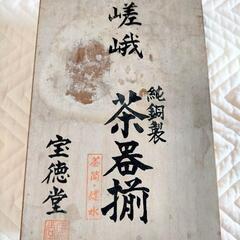 純銅製
茶器揃
茶筒・建水
嵯峨
宝德堂